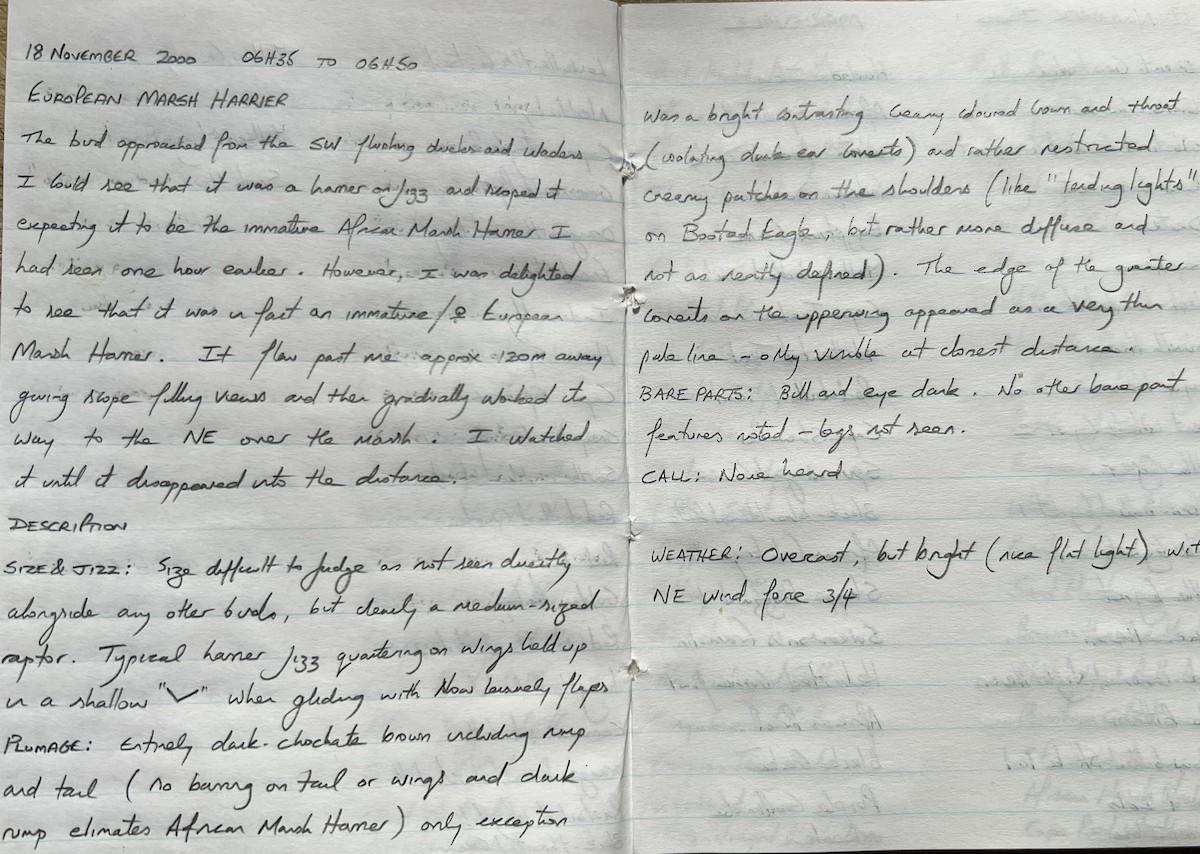 18 NOVEMBER 2000 06H35 TO 06H50
EUROPEAN MARSH HARRIER
The bird approached from the SW flushing ducks and waders
I could see that it was a harrier on jizz and scoped it
expecting it to be the immature African Marsh Harrier I
had seen one hour earlier. However, I was delighted
to see that it was in fact an immature/♀ European
Marsh Harrier. It flew past me approx 120m away
giving scope filling views and then gradually worked its
way to the NE over the marsh. I watched
it until it disappeared into the distance.
DESCRIPTION
SIZE & JIZZ: Size difficult to judge as not seen directly
alongside any other birds, but clearly a medium-sized
raptor. Typical harrier jizz quartering on wings held up
in a shallow "V" when gliding with slow leisurely flaps
PLUMAGE: Entirely dark chocolate brown including rump
and tail (no barring on tail or wings and dark
rump elimates African Marsh Harrier) only exception
was a bright contrasting creamy coloured crown and throat
(isolating dark ear coverts) and rather restricted
creamy patches on the shoulders (like "landing lights"
on Booted Eagle, but rather more diffuse and
not as neatly defined). The edge of the greater
coverts on the upperwing appeared as a very thin
pale line - only visible at closest distance.
BARE PARTS: Bill and eye dark. No other bare part
features noted - legs not seen.
CALL: None heard
WEATHER: Overcast, but bright (nice flat light) wit
NE wind force 3/4